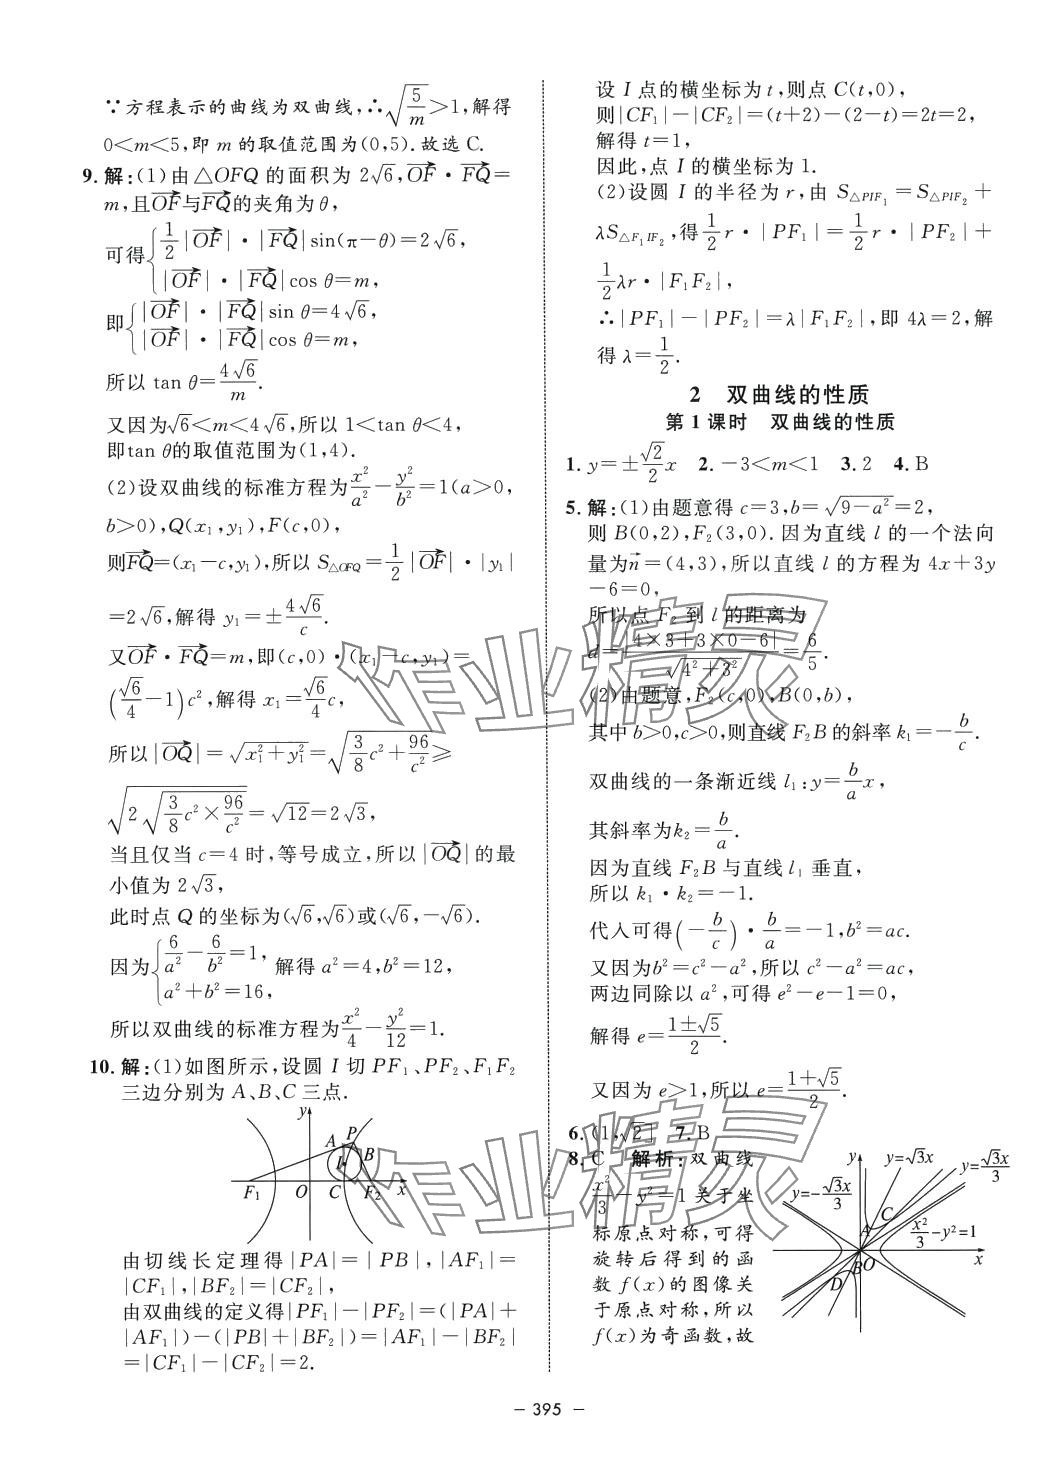 ∵方程表示的曲线为双曲线,∴√(5/m)>1,解得
0<m<5,即 m 的取值范围为(0,5).故选 C.
9. 解:(1)由△OFQ 的面积为 2√6,OF→·FQ→=
m,且OF→与FQ→的夹角为 θ,
可得{1/2|OF→|·|FQ→|sin(π-θ)=2√6,
|OF→|·|FQ→|cos θ=m,
即{|OF→|·|FQ→|sin θ=4√6,
|OF→|·|FQ→|cos θ=m,
所以 tan θ=4√6/m.
又因为√6<m<4√6,所以 1<tan θ<4,
即tan θ的取值范围为(1,4).
(2)设双曲线的标准方程为x²/a²-y²/b²=1(a>0,
b>0),Q(x₁,y₁),F(c,0),
则FQ→=(x₁-c,y₁),所以 S△OFQ=1/2|OF→|·|y₁|
=2√6,解得 y₁=±4√6/c.
又OF→·FQ→=m,即(c,0)·(x₁-c,y₁)=
(√6/4-1)c²,解得 x₁=√6/4 c,
所以|OQ→|=√(x₁²+y₁²)=√(3/8 c²+96/c²)≥
√(2√(3/8 c²×96/c²))=√12=2√3,
当且仅当 c=4 时,等号成立,所以|OQ→|的最
小值为 2√3,
此时点 Q 的坐标为(√6,√6)或(√6,-√6).
因为{6/a²-6/b²=1,
a²+b²=16,
解得 a²=4,b²=12,
所以双曲线的标准方程为x²/4-y²/12=1.
10. 解:(1)如图所示,设圆 I 切 PF₁、PF₂、F₁F₂
三边分别为 A、B、C 三点.
y
A P
I B
F₁ O C F₂ x
由切线长定理得|PA|=|PB|,|AF₁|=
|CF₁|,|BF₂|=|CF₂|,
由双曲线的定义得|PF₁|-|PF₂|=(|PA|+
|AF₁|)-(|PB|+|BF₂|)=|AF₁|-|BF₂|
=|CF₁|-|CF₂|=2.
设 I 点的横坐标为 t,则点 C(t,0),
则|CF₁|-|CF₂|=(t+2)-(2-t)=2t=2,
解得 t=1,
因此,点 I 的横坐标为 1.
(2)设圆 I 的半径为 r,由 S△PIF₁=S△PIF₂+
λS△F₁IF₂,得1/2 r·|PF₁|=1/2 r·|PF₂|+
1/2 λr·|F₁F₂|,
∴|PF₁|-|PF₂|=λ|F₁F₂|,即 4λ=2,解
得 λ=1/2.
2 双曲线的性质
第 1 课时 双曲线的性质
1. y=±√2/2 x 2. -3<m<1 3. 2 4. B
5. 解:(1)由题意得 c=3,b=√(9-a²)=2,
则 B(0,2),F₂(3,0).因为直线 l 的一个法向
量为n→=(4,3),所以直线 l 的方程为 4x+3y
-6=0,
所以点 F₂ 到 l 的距离为
d=|4×3+3×0-6|/√(4²+3²)=6/5.
(2)由题意,F₂(c,0),B(0,b),
其中 b>0,c>0,则直线 F₂B 的斜率 k₁=-b/c.
双曲线的一条渐近线 l₁:y=b/a x,
其斜率为k₂=b/a.
因为直线 F₂B 与直线 l₁ 垂直,
所以 k₁·k₂=-1.
代入可得(-b/c)·b/a=-1,b²=ac.
又因为b²=c²-a²,所以 c²-a²=ac,
两边同除以 a²,可得 e²-e-1=0,
解得 e=(1±√5)/2.
又因为 e>1,所以 e=(1+√5)/2.
6. (1,√2] 7. B
8. C 解析:双曲线
x²/3-y²=1 关于坐
标原点对称,可得
旋转后得到的函
数 f(x)的图像关
于原点对称,所以
f(x)为奇函数,故
y y=√3x
y=√3x/3
y=-√3x/3
A C
x²/3-y²=1
B O x
D
作业精灵
作业精灵
- 395 -